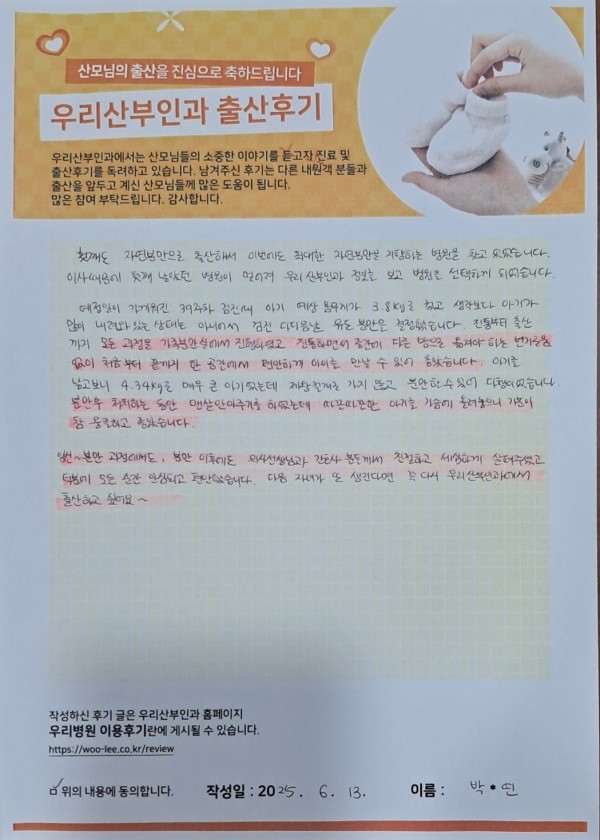 산모님의 출산을 진심으로 축하드립니다
우리산부인과 출산후기
우리산부인과에서는 산모님들의 소중한 이야기를 듣고자 진료 및
출산후기를 독려하고 있습니다. 남겨주신 후기는 다른 내원객 분들과
출산을 앞두고 계신 산모님들께 많은 도움이 됩니다.
많은 참여 부탁드립니다. 감사합니다.
첫째도 자연분만으로 출산해서 이번에도 최대한 자연분만을 지향하는 병원을 찾고 있었습니다.
이사때문에 첫째 낳았던 병원이 멀어져 우리산부인과 정보를 보고 병원을 선택하게 되었습니다.
예정일이 가까워진 39주차 검진때 아기 예상 몸무게가 3.8kg를 찍고 생각보다 아기가
많이 내려와 있는 상태는 아니어서 검진 다음날 유도 분만을 결정했습니다. 진통부터 출산
까지 모든 과정을 가족분만실에서 진행하였고 진통하면서 중간에 다른 방으로 옮겨야 하는 번거로움
없이 처음부터 끝까지 한 공간에서 편안하게 아이를 만날 수 있어 좋았습니다. 아기를
낳고보니 4.34kg로 매우 큰 아기였는데 제왕절개로 가지 않고 분만할 수 있어 다행이었습니다.
분만후 회복하는 동안 맨살안아주기를 하였는데 따끈따끈한 아기를 가슴에 올려놓으니 기분이
참 뭉클하고 좋았습니다.
임신~분만 과정에서도, 분만 이후에도 의사선생님과 간호사 분들께서 친절하고 세심하게 살펴주셨고
덕분에 모든 순간 안심되고 편안했습니다. 다음 자녀가 또 생긴다면 꼭 다시 우리산부인과에서
출산하고 싶어요~
작성하신 후기 글은 우리산부인과 홈페이지
우리병원 이용후기란에 게시될 수 있습니다.
https://woo-lee.co.kr/review
위의 내용에 동의합니다. 작성일 : 2025. 6. 13. 이름 : 박*민